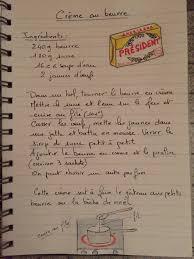 Crème au beurre
Ingrédients:
240g beurre
120g sucre
16 c.c soup d'eau
2 jaunes d'oeuf
PRÉSIDENT
Dans un bol, tourner le beurre en crème
Mettre le sucre et l'eau sur le feu et
cuire au filé (100°)
Casser les oeufs, mettre les jaunes dans
une jatte et battre en mousse. Verser le
sirop de sucre petit à petit
Ajouter le beurre en crème et le parfum
On peut choisir un autre parfum
Cette crème sert à faire le gâteau aux petits
beurre ou la bûche de noël